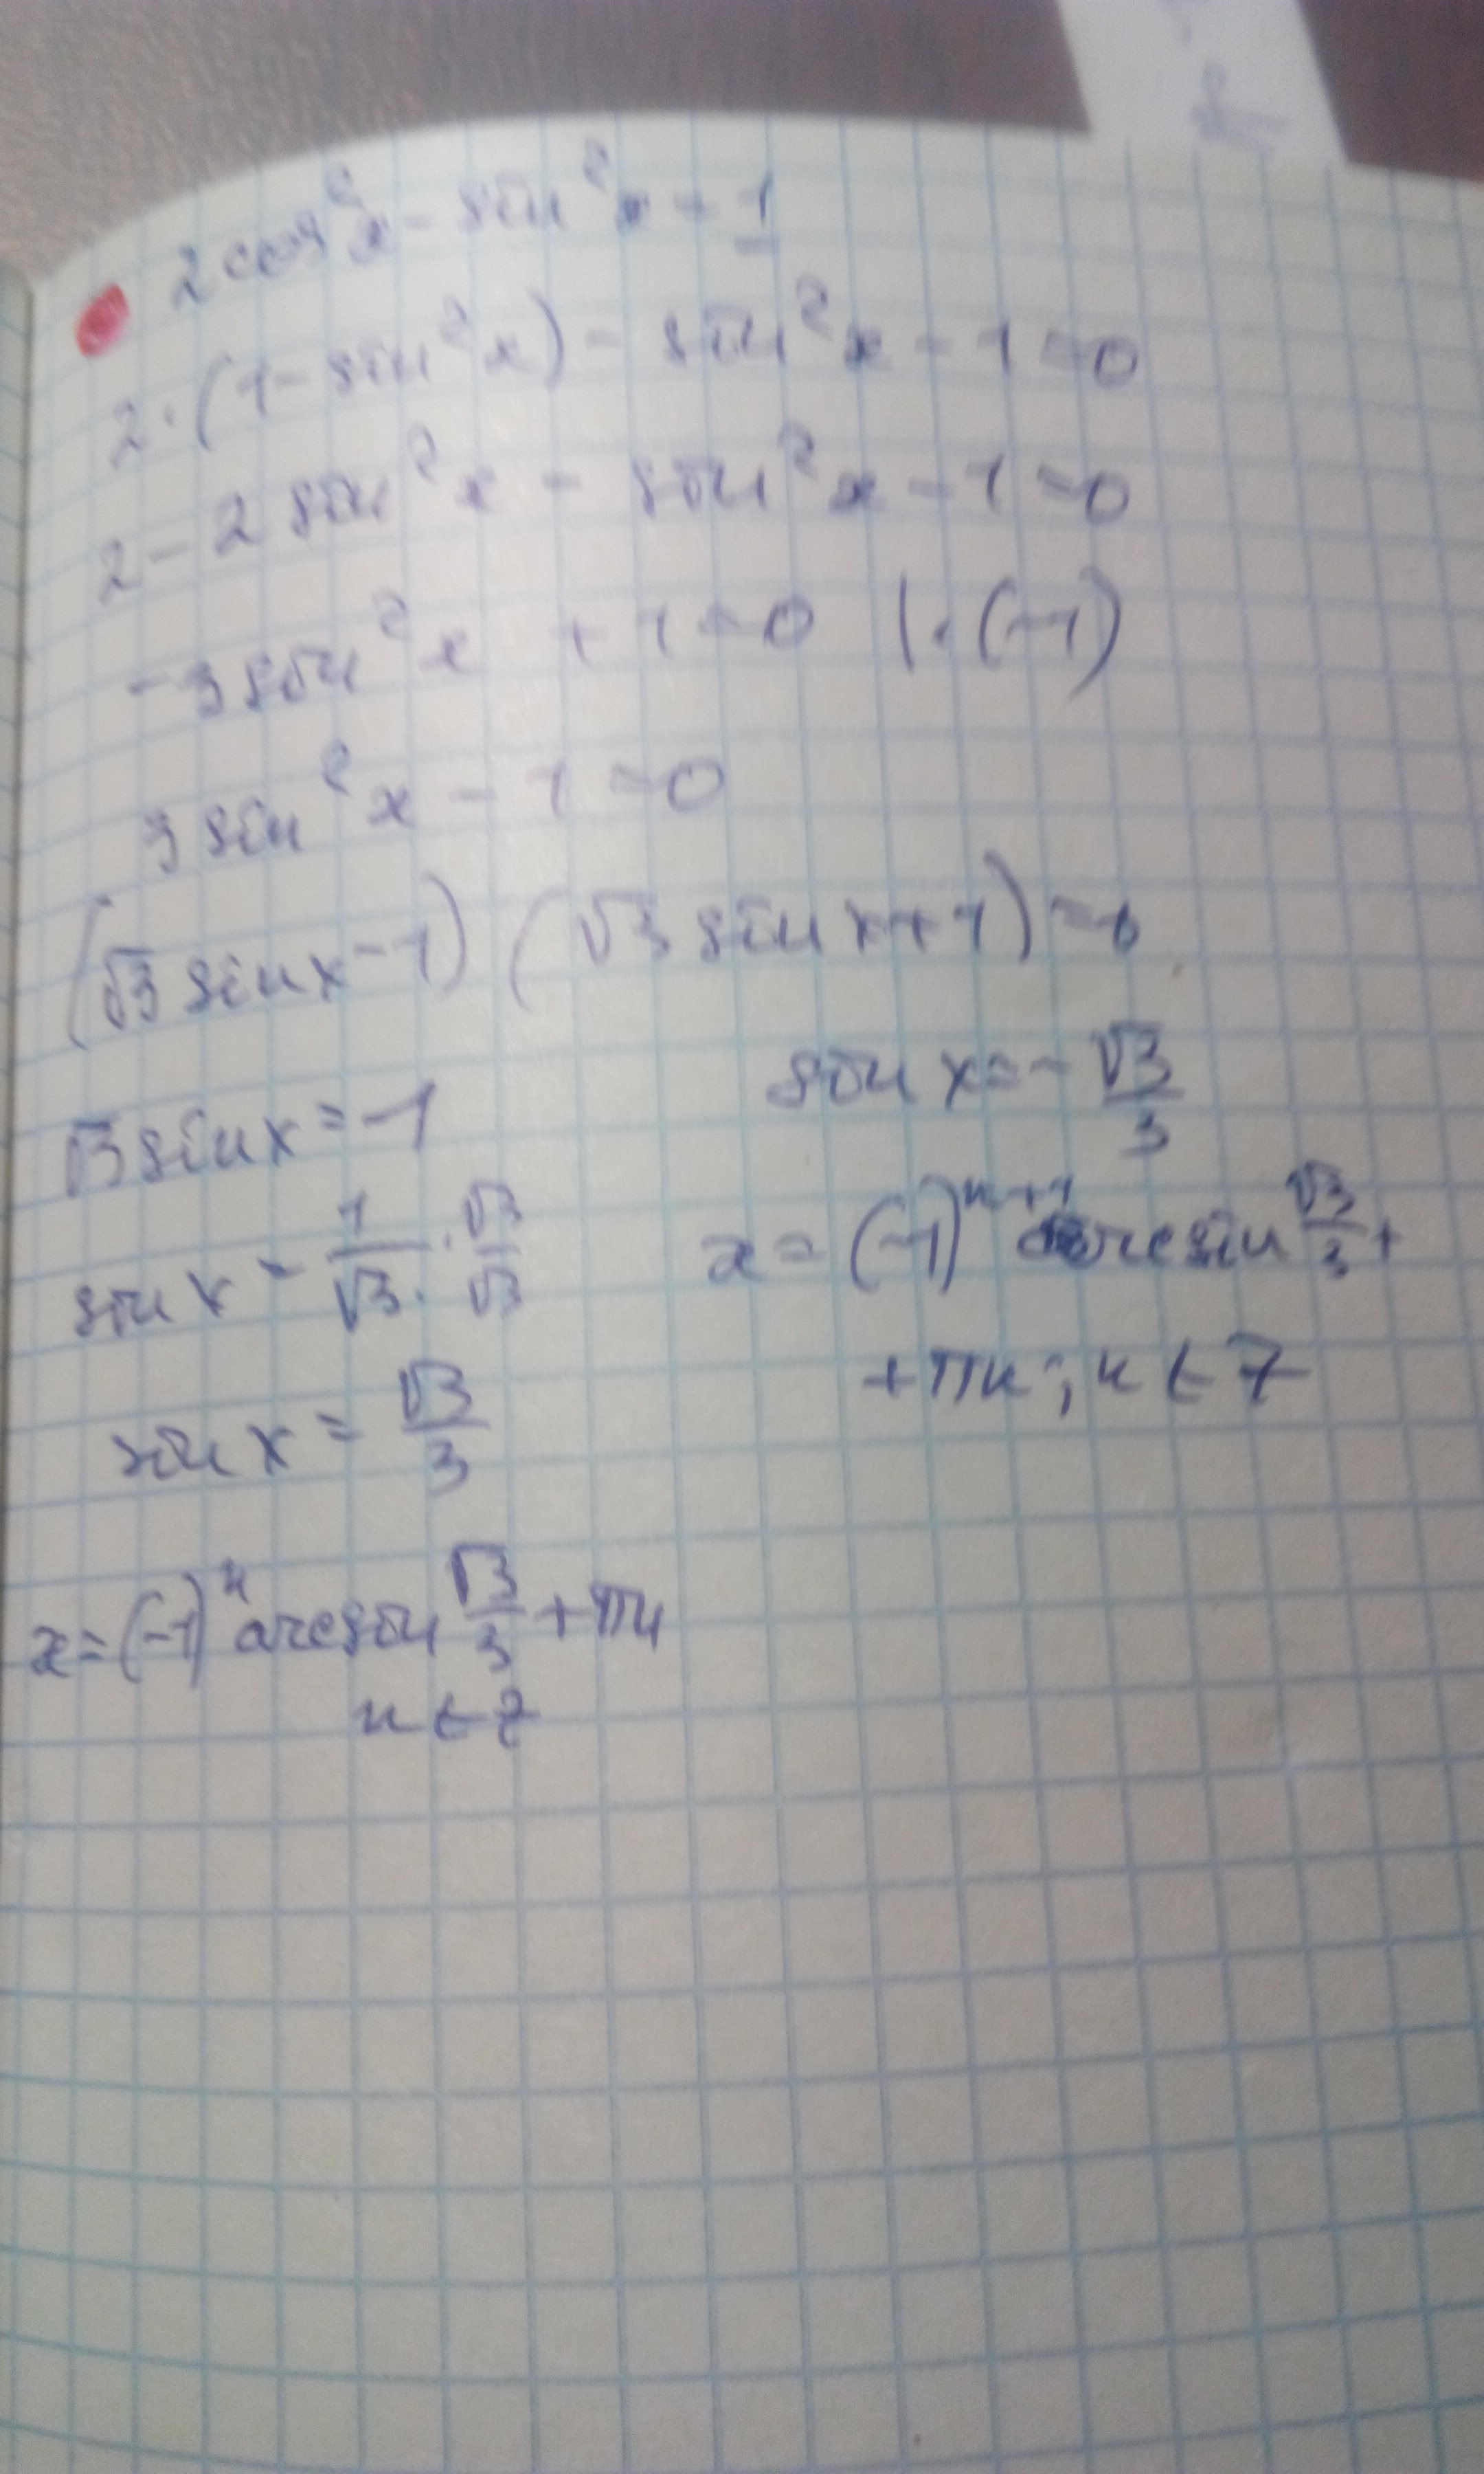 2cos²x - sin²x = 1
2·(1 - sin²x) - sin²x - 1 = 0
2 - 2sin²x - sin²x - 1 = 0
-3sin²x + 1 = 0 |·(-1)
3sin²x - 1 = 0
(√3 sinx - 1) (√3 sinx + 1) = 0
√3 sinx = 1
sinx = 1/√3 · √3/√3
sinx = √3/3
x = (-1)ⁿ arcsin √3/3 + πn
n ∈ Z
sinx = - √3/3
x = (-1)ⁿ⁺¹ arcsin √3/3 +
+ πn ; n ∈ Z